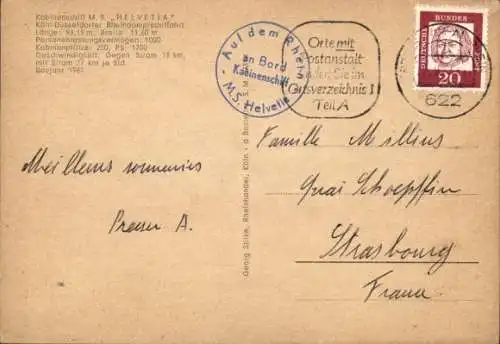 Kabinenschiff M. S. „HELVETIA"
Köln-Düsseldorfer Rheindampfschiffahrt
Länge: 93,15 m, Breite: 11,60 m
Personenfassungsvermögen: 1000
Kabinenplätze: 200, PS: 1700
Geschwindigkeit: Gegen Strom 18 km,
mit Strom 27 km je Std.
Baujahr 1961
Auf dem Rhein
an Bord
Kabinenschiff
M.S. Helvetia
Orte mit
Postanstalt
Ortsverzeichnis I
Teil A
DEUTSCHE BUNDESPOST
20
622
Meilleurs souvenirs
A.
Georg Stilke, Rheinhandel, Köln
Famille
Quai Schoepflin
Strasbourg
France